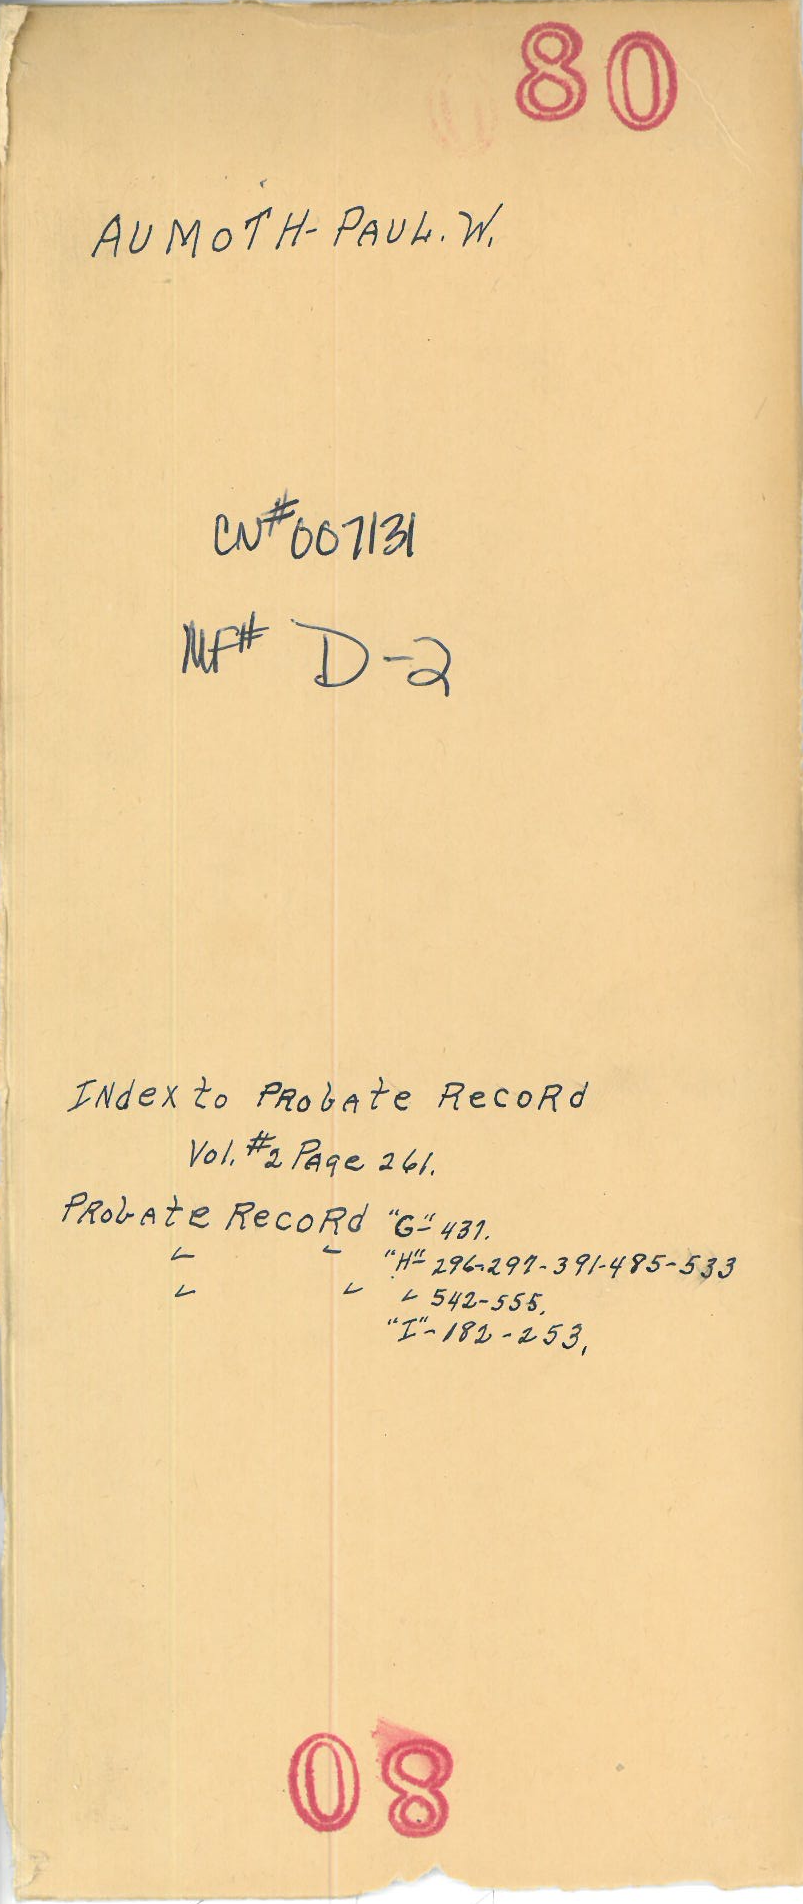 80
AUMOTH-PAUL.W.
CN#007131
MF# D-2
INdex to PRObAte RecoRd
Vol. #2 PAge 261.
PRObAte RecoRd "G-" 437.
" " "H-" 296-297-391-485-533
" " " 542-555.
"I"-182-253.
80